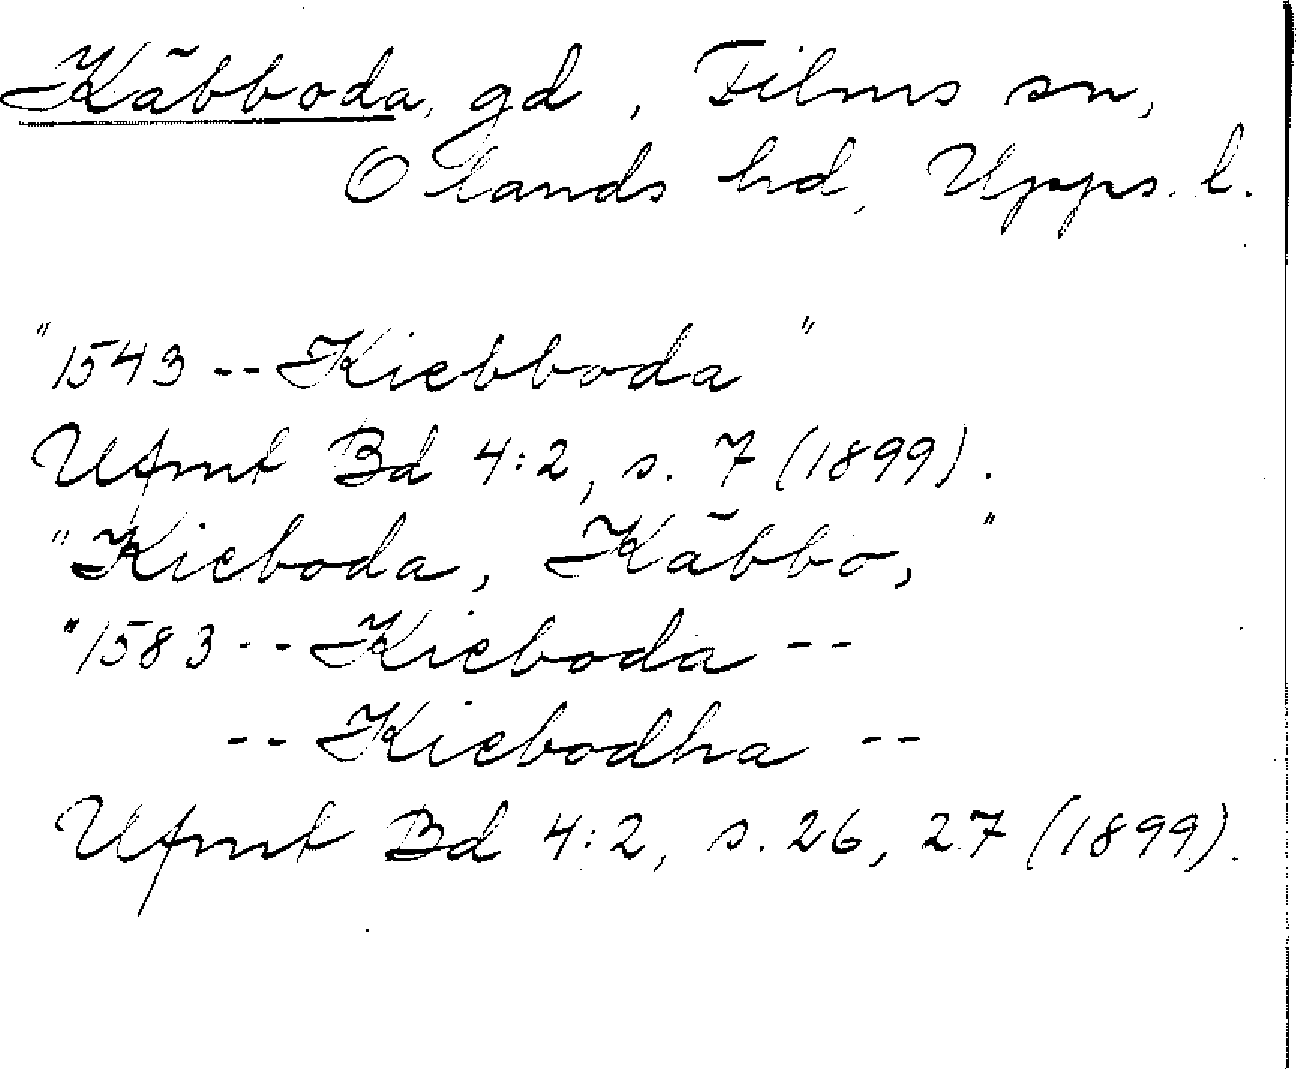 Käbboda, gd, Films sn,
Olands hd, Upps. l.
"1543 -- Kiebboda"
Ufmt Bd 4:2, s. 7 (1899).
"Kieboda, Käbbo,"
"1583 -- Kieboda --
-- Kiebodha --
Ufmt Bd 4:2, s. 26, 27 (1899).